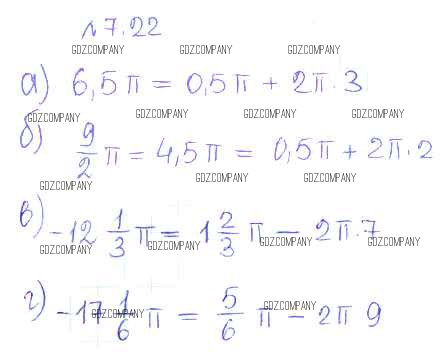 №7.22
GDZCOMPANY GDZCOMPANY GDZCOMPANY
а) 6,5π = 0,5π + 2π·3
GDZCOMPANY GDZCOMPANY GDZCOMPANY GDZCOMPANY
б) 9/2 π = 4,5π = 0,5π + 2π·2
GDZCOMPANY GDZCOMPANY GDZCOMPANY
в) -12 1/3 π = 1 2/3 π - 2π·7
GDZCOMPANY GDZCOMPANY GDZCOMPANY GDZCOMPANY
г) -17 1/6 π = 5/6 π - 2π 9
GDZCOMPANY GDZCOMPANY